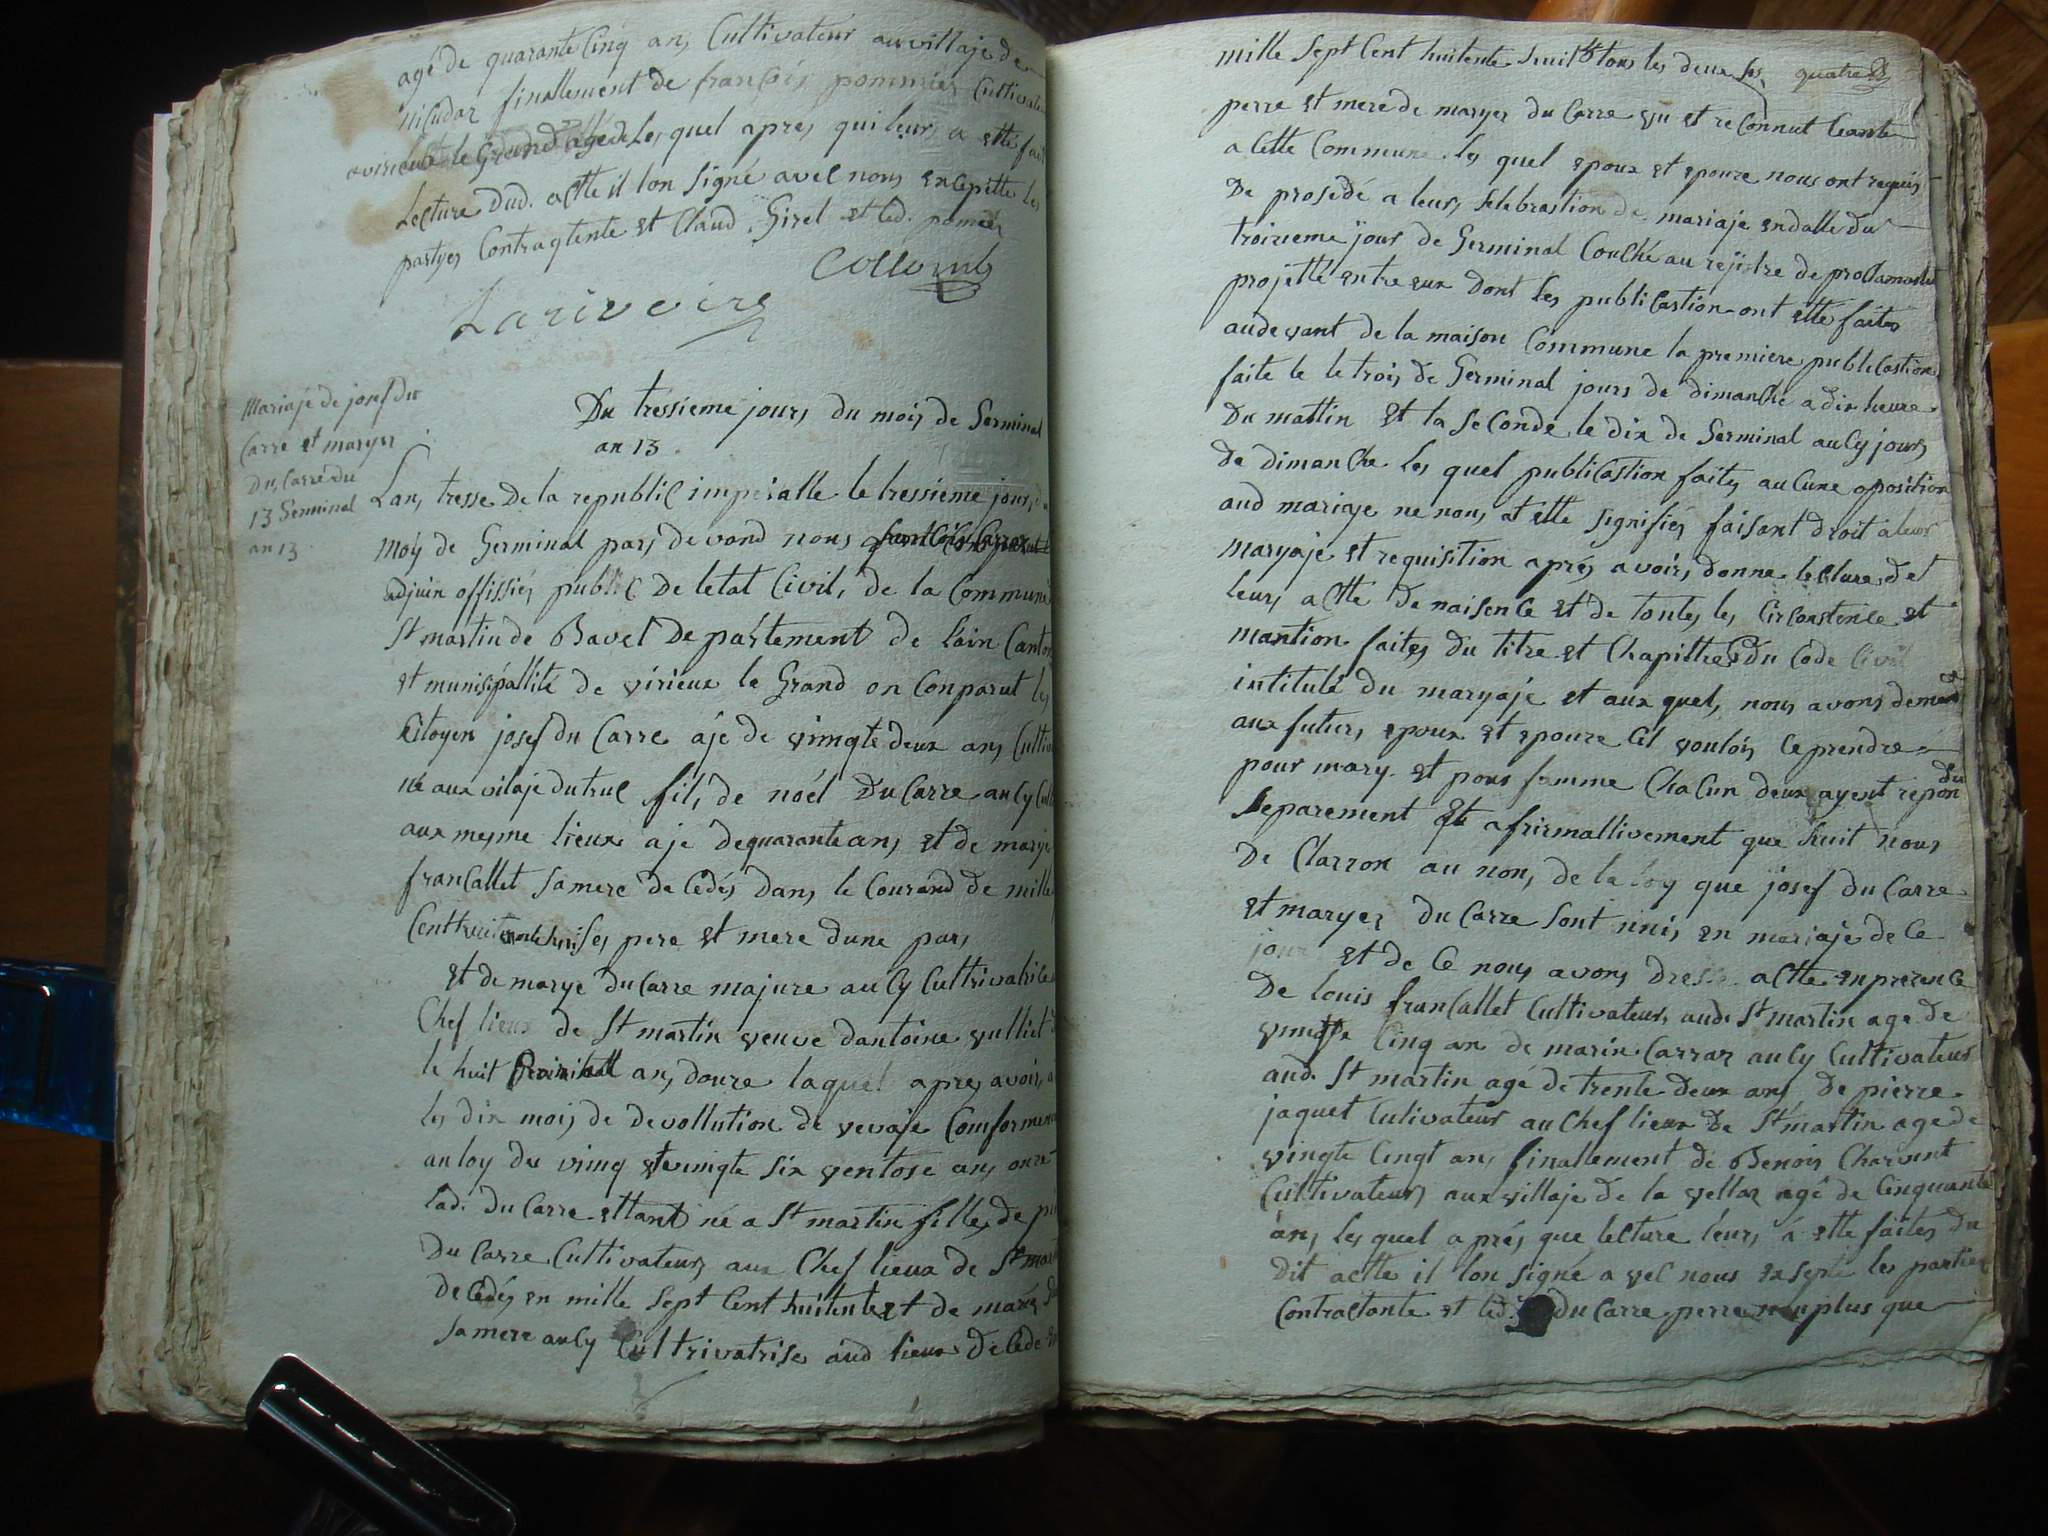 agé de quarante Cinq ans Cultivateur au village de
finallement de francois pommier Cultivate
a virieux le Grand agé de Les quel apres qui leurs a etté fait
Lecture dud. actte il lon signé avec nous excepitte les
partyes Contraqtente et Claud. Girel et led. pomier
Collomb
Larivoire
Mariaje de josef du
Carre et maryer
Du Carre du
13 Germinal
an 13
Du tressieme jours du mois de Germinal
an 13.
Lan, tresse De la republic imperialle le tressieme jours, du
moys de Germinal pars devand nous
adjuin offissiés public De letat Civil, de la Commune
St martin de Bavel Departement de L'ain Canton
et munisipallité de virieux le Grand on Conparut les
Citoyen josef du Carre aje de vinngte deux ans Cultiv
né aux vilaje du truc fils de noél Du Carre aucy Cult
aux mesme lieux aje de quarante ans et de marye
francallet sa mere decedés Dans le Courand de mille
Cent pere et mere dune pars
et de marye du Carre majure aucy Cultrivatrice
Chef lieux de St martin veuve dantoine vulliet
le huit Prairiall ans, douze laquel apres avoirs
les dix mois de devollution de vevaje Comformem
au loy du vinng et vinngte six ventose ans onze
lad. du Carre ettant né a St martin fille, de pi
Du Carre Cultivateurs aux Chef lieux de St mart
decedés en mille sept Cent huitente et de marie
sa mere aucy Cultrivatrise aud lieux Decede en
mille sept Cent huitente huit tous les deux ses quatre
perre et mere de maryer du Carre vu et reConnut
a Cette Commune. les quel epoux et epouze nous ont requis
De prosedé a leurs selebrastion de mariaje en datte du
troizieme jour de Germinal Couché au rejistre de proclamastion
projetté entre eux dont les publicastion ont etté faites
audevant de la maison Commune la premiere publicastion
faite le le trois de Germinal jours de dimanche a dix heure
Du mattin et la seConde le dix de Germinal aucy jours
de dimanche les quel publicastion faites auCune oposition
aud mariaje ne nous at etté signifies faisant droit a leur
maryaje et requisition aprés avoirs donne lecture de
leurs actte de naisence et de toutes les Circonstence et
mantion faites du titre et Chapittre du Code Civil
intitulé du maryaje et aux quel, nous avons demandé
aux futurs epoux et epouze Cil voulois ce prendre
pour mary et pour famme Chacun deux ayent repondu
separement et afrirmattivement que huit nous
De Clarron au non, de la loy que josef du Carre
et maryer du Carre sont unis en mariaje de Ce
jour et de Ce nous avons dressé actte en prezence
De louis francallet Cultivateurs aud. St martin age de
vinngte Cinq an de marin Carrar aucy Cultivateur
aud. St martin agé de trente deux ans de pierre
jaquet Cultivateur au Chef lieux de St martin age de
vingte Cingt ans finallement de Benois Charvent
Cultivateurs aux villaje de la vellaz agé de Cinquante
ans les quel aprés que lecture leurs á etté faites du
dit actte il lon signé avec nous exsepté les parties
Contractante et led. du Carre perre non plus que